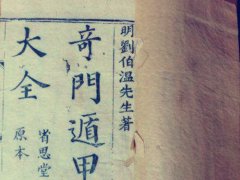 明劉伯溫先生著
奇門遁甲
大全
省思堂
原本